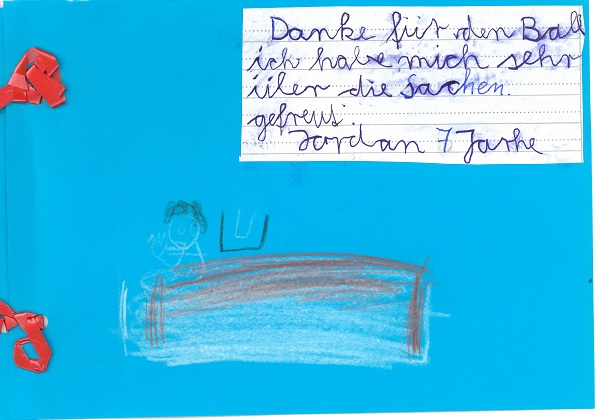 Danke für den Ball
ich habe mich sehr
über die Sachen.
gefreut.
Jordan 7 Jarhe